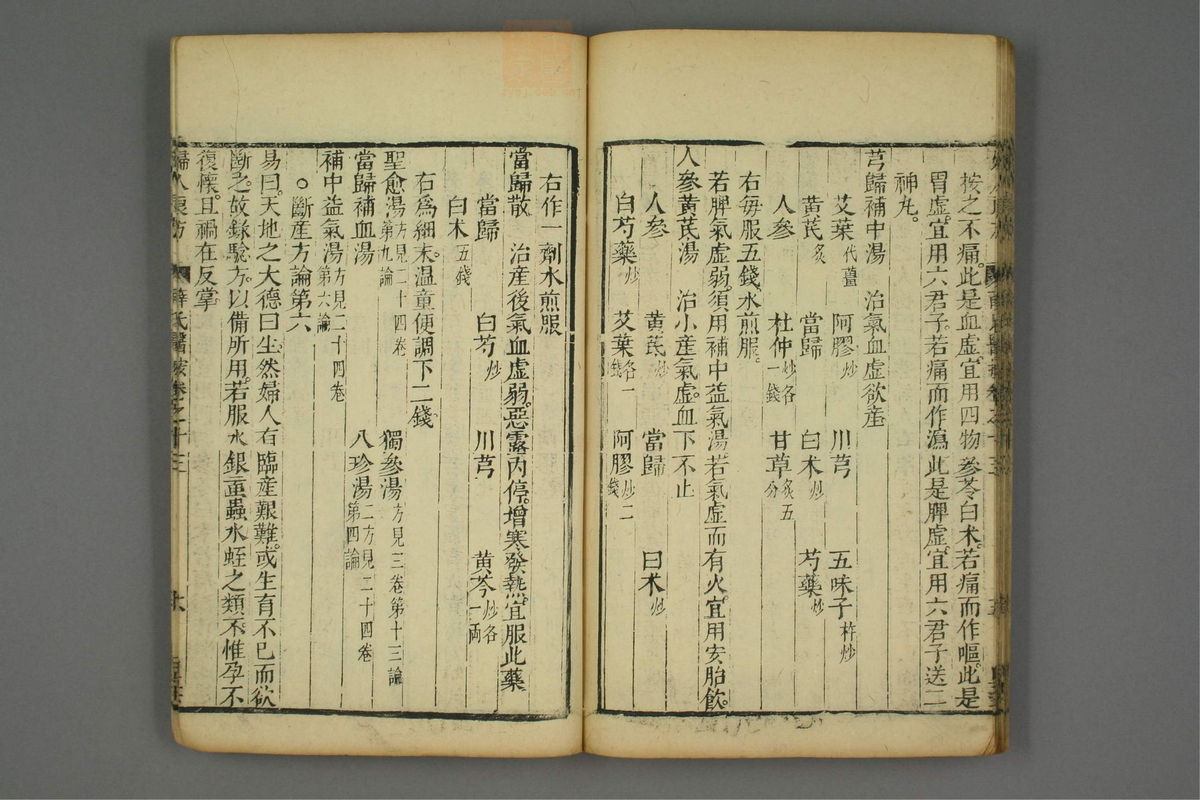 按之不痛。此是血虛。宜用四物參苓白术。若痛而作嘔。此是
胃虛。宜用六君子。若痛而作瀉。此是脾虛。宜用六君子送二
神丸。
芎歸補中湯 治氣血虛欲產
艾葉代薑 阿膠炒 川芎 五味子杵炒
黃芪炙 當歸 白术炒 芍藥炒
人參 杜仲炒各一錢 甘草炙五分
右每服五錢。水煎服。
若脾氣虛弱。須用補中益氣湯。若氣虛而有火。宜用安胎飲。
人參黃芪湯 治小產氣虛。血下不止
人參 黃芪炒 當歸 白术炒
白芍藥炒 艾葉各一錢 阿膠炒二錢
右作一劑水煎服
當歸散 治產後氣血虛弱。惡露內停。增寒發熱。宜服此藥
當歸 白芍炒 川芎 黃芩炒各一兩
白术五錢
右爲細末。温童便調下二錢。
聖愈湯方見二十四卷第九論 獨參湯方見三卷第十三論
當歸補血湯 八珍湯二方見二十四卷第四論
補中益氣湯方見二十四卷第六論
○斷產方論第六
易曰。天地之大德曰生。然婦人有臨產艱難。或生育不已而欲
斷之。故錄驗方。以備所用。若服水銀䖟蟲水蛭之類。不惟孕不
復懷。且禍在反掌
婦人良方 薛氏醫按卷之十三 十六